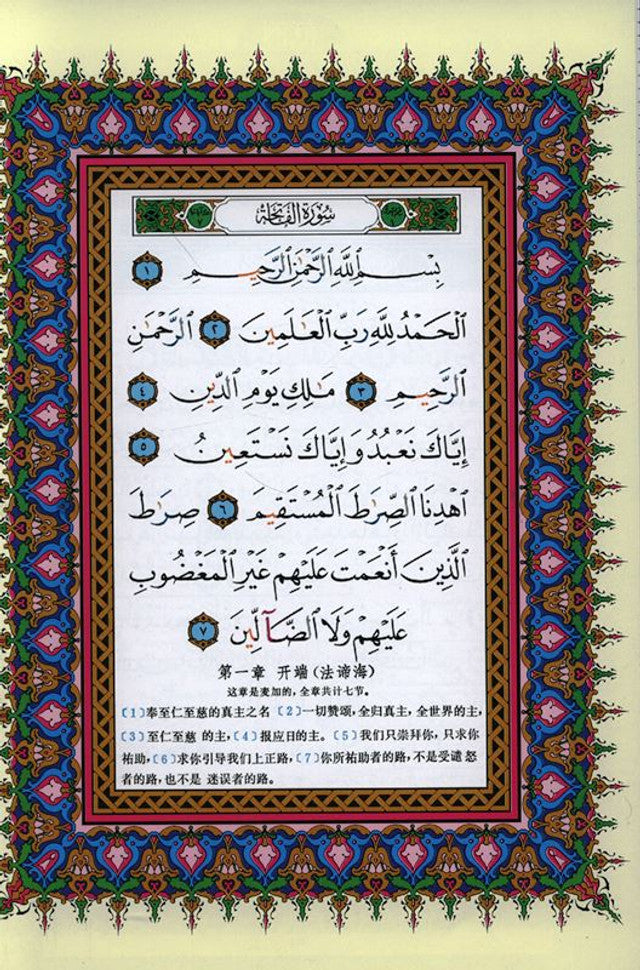 سُورَةُ الفَاتِحَةِ
بِسْمِ ٱللَّهِ ٱلرَّحْمَٰنِ ٱلرَّحِيمِ ١
ٱلْحَمْدُ لِلَّهِ رَبِّ ٱلْعَٰلَمِينَ ٢ ٱلرَّحْمَٰنِ
ٱلرَّحِيمِ ٣ مَٰلِكِ يَوْمِ ٱلدِّينِ ٤
إِيَّاكَ نَعْبُدُ وَإِيَّاكَ نَسْتَعِينُ ٥
ٱهْدِنَا ٱلصِّرَٰطَ ٱلْمُسْتَقِيمَ ٦ صِرَٰطَ
ٱلَّذِينَ أَنْعَمْتَ عَلَيْهِمْ غَيْرِ ٱلْمَغْضُوبِ
عَلَيْهِمْ وَلَا ٱلضَّآلِّينَ ٧
第一章 开端(法谛海)
这章是麦加的,全章共计七节。
〔1〕奉至仁至慈的真主之名〔2〕一切赞颂,全归真主,全世界的主,
〔3〕至仁至慈 的主,〔4〕报应日的主。〔5〕我们只崇拜你,只求你
祐助,〔6〕求你引导我们上正路,〔7〕你所祐助者的路,不是受谴 怒
者的路,也不是 迷误者的路。